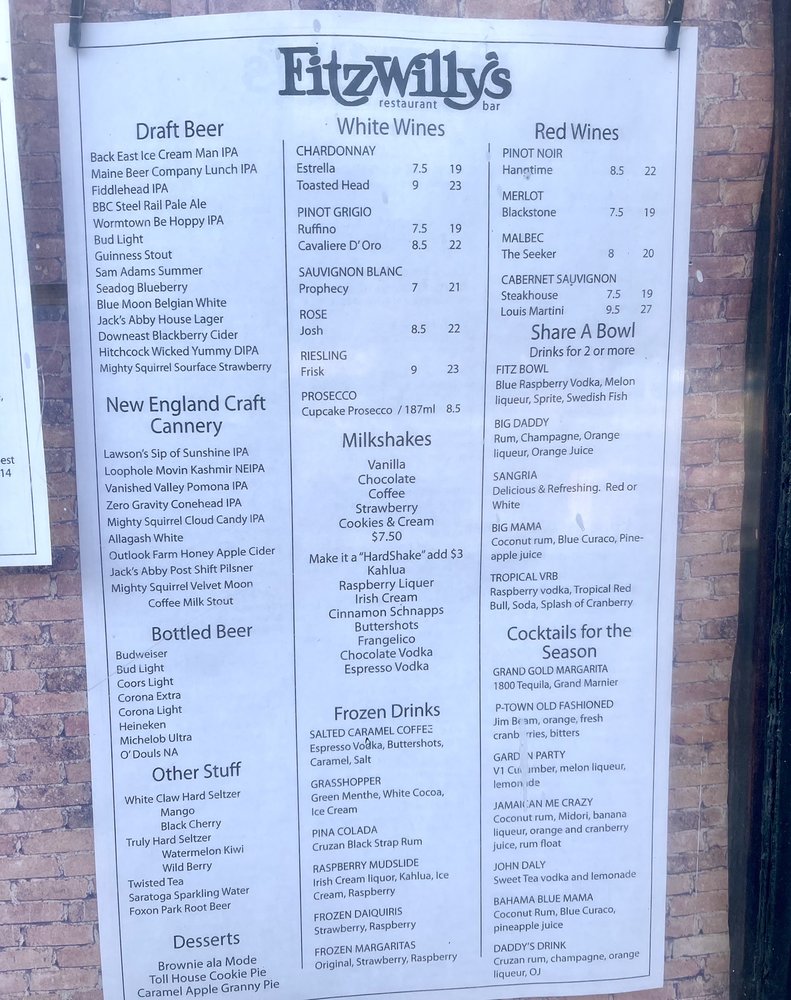 est
14
FitzWilly's
restaurant bar
Draft Beer
Back East Ice Cream Man IPA
Maine Beer Company Lunch IPA
Fiddlehead IPA
BBC Steel Rail Pale Ale
Wormtown Be Hoppy IPA
Bud Light
Guinness Stout
Sam Adams Summer
Seadog Blueberry
Blue Moon Belgian White
Jack's Abby House Lager
Downeast Blackberry Cider
Hitchcock Wicked Yummy DIPA
Mighty Squirrel Sourface Strawberry
New England Craft
Cannery
Lawson's Sip of Sunshine IPA
Loophole Movin Kashmir NEIPA
Vanished Valley Pomona IPA
Zero Gravity Conehead IPA
Mighty Squirrel Cloud Candy IPA
Allagash White
Outlook Farm Honey Apple Cider
Jack's Abby Post Shift Pilsner
Mighty Squirrel Velvet Moon
Coffee Milk Stout
Bottled Beer
Budweiser
Bud Light
Coors Light
Corona Extra
Corona Light
Heineken
Michelob Ultra
O'Douls NA
Other Stuff
White Claw Hard Seltzer
Mango
Black Cherry
Truly Hard Seltzer
Watermelon Kiwi
Wild Berry
Twisted Tea
Saratoga Sparkling Water
Foxon Park Root Beer
Desserts
Brownie ala Mode
Toll House Cookie Pie
Caramel Apple Granny Pie
White Wines
CHARDONNAY
Estrella 7.5 19
Toasted Head 9 23
PINOT GRIGIO
Ruffino 7.5 19
Cavaliere D'Oro 8.5 22
SAUVIGNON BLANC
Prophecy 7 21
ROSE
Josh 8.5 22
RIESLING
Frisk 9 23
PROSECCO
Cupcake Prosecco / 187ml 8.5
Milkshakes
Vanilla
Chocolate
Coffee
Strawberry
Cookies & Cream
$7.50
Make it a "HardShake" add $3
Kahlua
Raspberry Liquer
Irish Cream
Cinnamon Schnapps
Buttershots
Frangelico
Chocolate Vodka
Espresso Vodka
Frozen Drinks
SALTED CARAMEL COFFEE
Espresso Vodka, Buttershots,
Caramel, Salt
GRASSHOPPER
Green Menthe, White Cocoa,
Ice Cream
PINA COLADA
Cruzan Black Strap Rum
RASPBERRY MUDSLIDE
Irish Cream liquor, Kahlua, Ice
Cream, Raspberry
FROZEN DAIQUIRIS
Strawberry, Raspberry
FROZEN MARGARITAS
Original, Strawberry, Raspberry
Red Wines
PINOT NOIR
Hangtime 8.5 22
MERLOT
Blackstone 7.5 19
MALBEC
The Seeker 8 20
CABERNET SAUVIGNON
Steakhouse 7.5 19
Louis Martini 9.5 27
Share A Bowl
Drinks for 2 or more
FITZ BOWL
Blue Raspberry Vodka, Melon
liqueur, Sprite, Swedish Fish
BIG DADDY
Rum, Champagne, Orange
liqueur, Orange Juice
SANGRIA
Delicious & Refreshing. Red or
White
BIG MAMA
Coconut rum, Blue Curaco, Pine-
apple juice
TROPICAL VRB
Raspberry vodka, Tropical Red
Bull, Soda, Splash of Cranberry
Cocktails for the
Season
GRAND GOLD MARGARITA
1800 Tequila, Grand Marnier
P-TOWN OLD FASHIONED
Jim Beam, orange, fresh
cranberries, bitters
GARDEN PARTY
V1 Cucumber, melon liqueur,
lemonade
JAMAICAN ME CRAZY
Coconut rum, Midori, banana
liqueur, orange and cranberry
juice, rum float
JOHN DALY
Sweet Tea vodka and lemonade
BAHAMA BLUE MAMA
Coconut Rum, Blue Curaco,
pineapple juice
DADDY'S DRINK
Cruzan rum, champagne, orange
liqueur, OJ